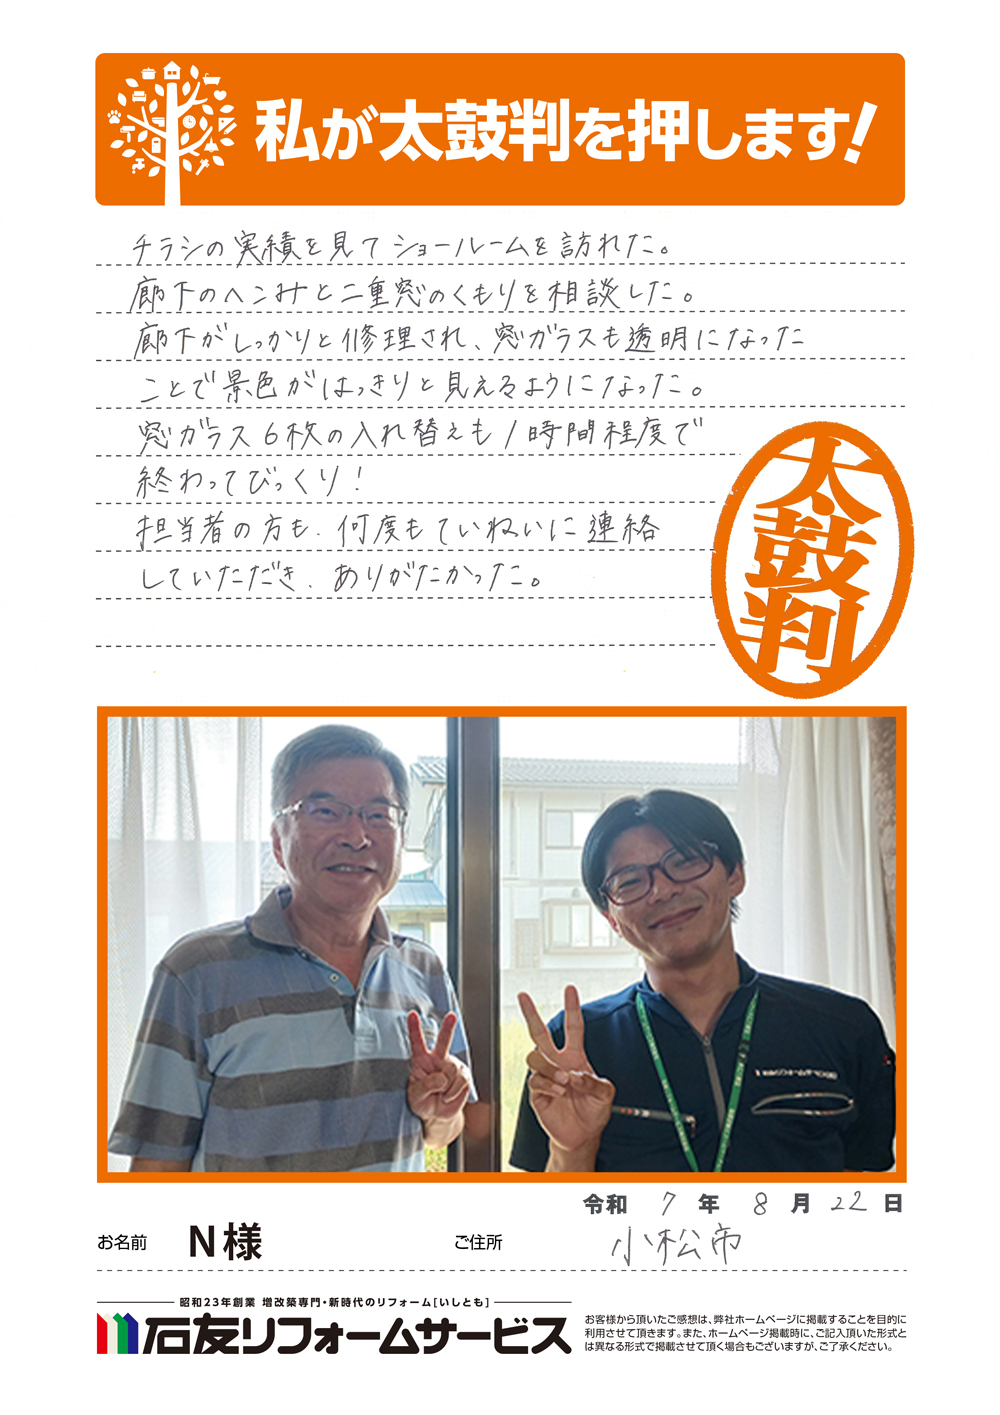 私が太鼓判を押します!
チラシの実績を見てショールームを訪れた。
廊下のヘこみと二重窓のくもりを相談した。
廊下がしっかりと修理され、窓ガラスも透明になった
ことで景色がはっきりと見えるようになった。
窓ガラス6枚の入れ替えも1時間程度で
終わってびっくり!
担当者の方も、何度もていねいに連絡
していただき、ありがたかった。
太鼓判
令和 7 年 8 月 22 日
お名前 N様 ご住所 小松市
昭和23年創業 増改築専門・新時代のリフォーム[いしとも]
石友リフォームサービス
お客様から頂いたご感想は、弊社ホームページに掲載することを目的に
利用させて頂きます。また、ホームページ掲載時に、ご記入頂いた形式と
は異なる形式で掲載させて頂く場合もございますが、ご了承ください。